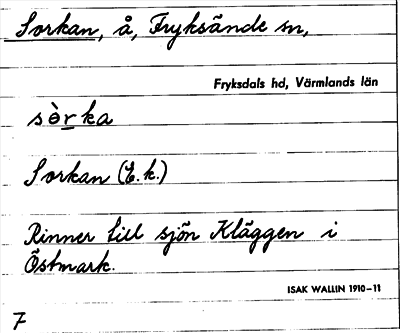 Sorkan, å, Fryksände sn,
Fryksdals hd, Värmlands län
sòrka
Sorkan (E.k.)
Rinner till sjön Kläggen i
Östmark.
ISAK WALLIN 1910–11
7